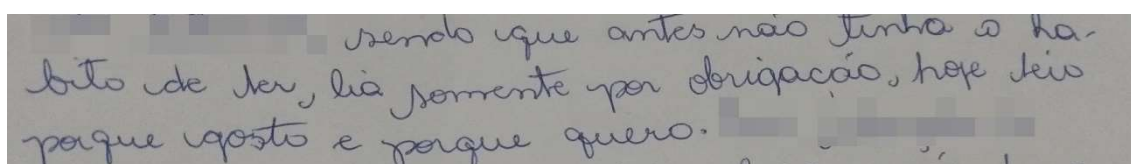 sendo que antes não tinha o ha-
bito de ler, lia somente por obrigação, hoje leio
porque gosto e porque quero.